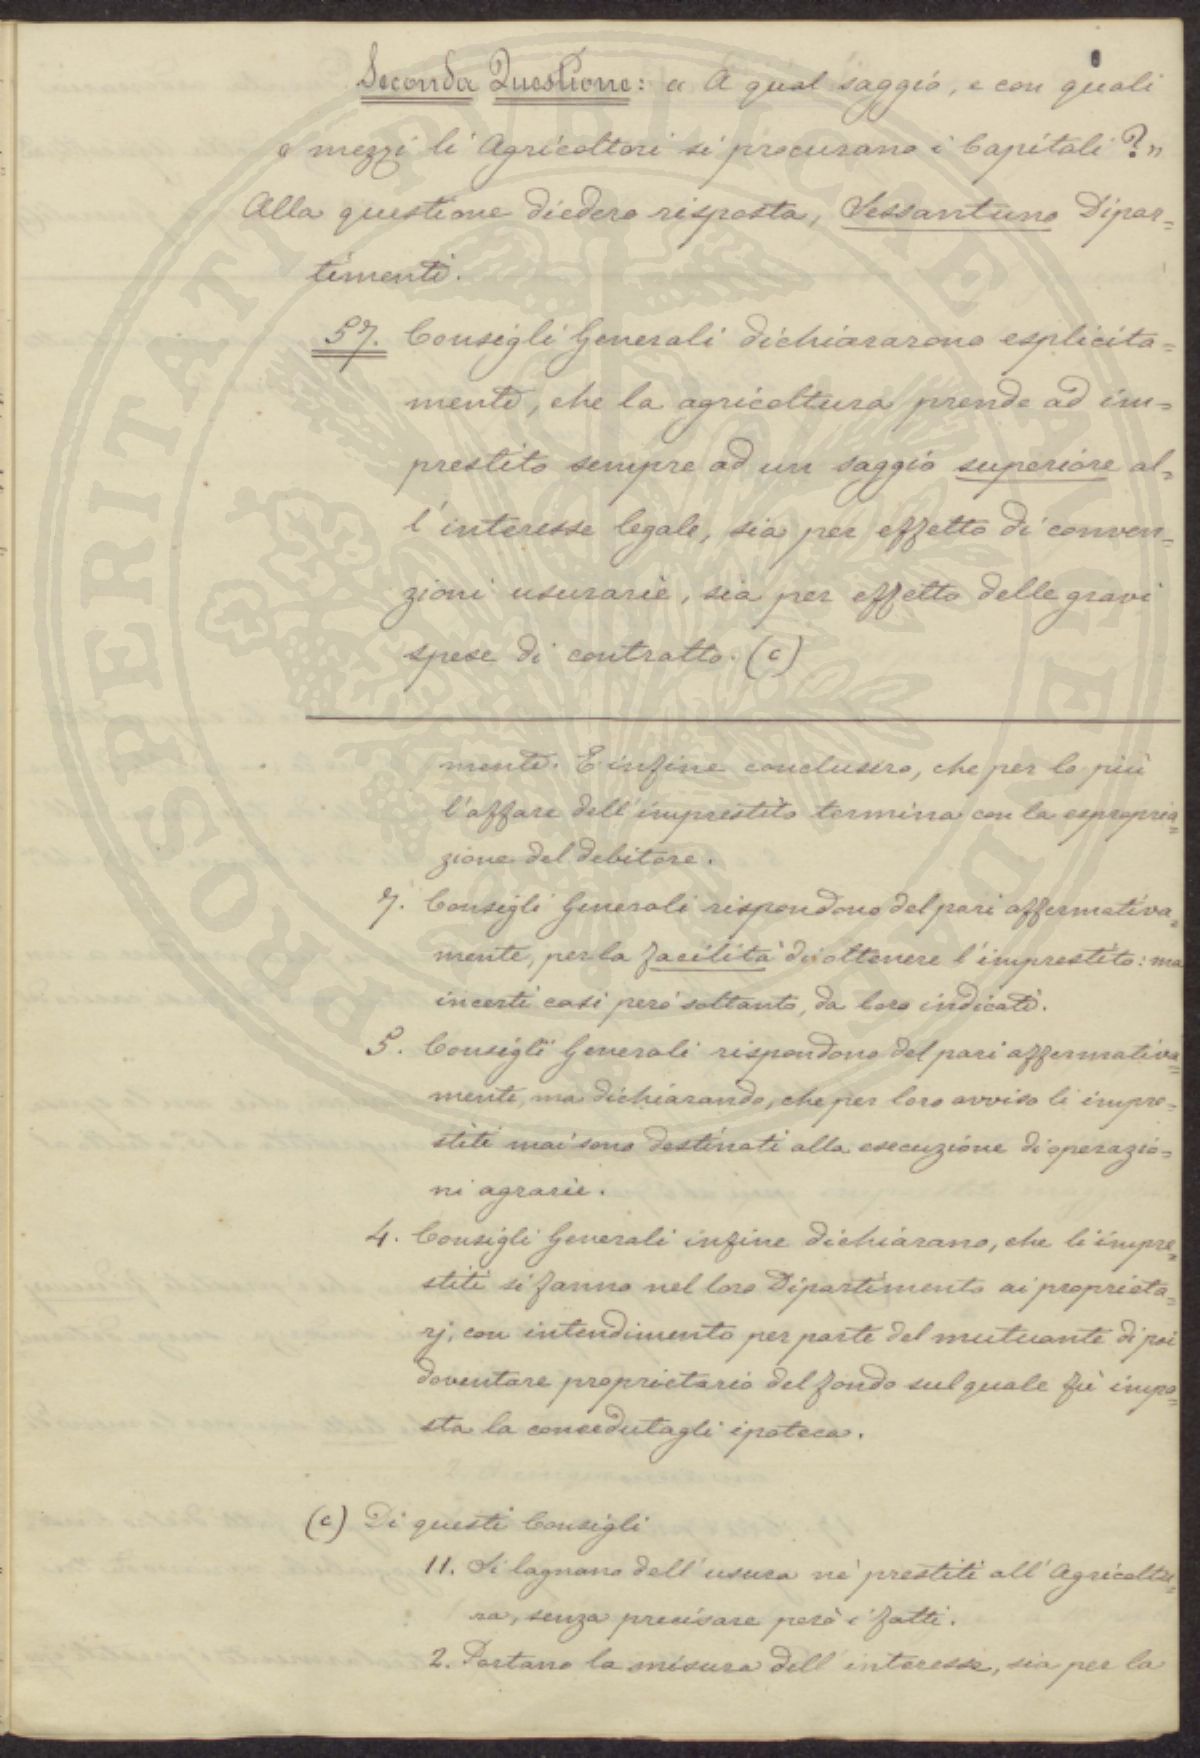 Seconda Questione: « A qual saggio, e con quali
« mezzi li Agricoltori si procurano i Capitali? »
Alla questione diedero risposta, Sessantuno Dipar=
timenti.
57. Consigli Generali dichiararono esplicita=
mente, che la agricoltura prende ad im=
prestito sempre ad un saggio superiore al=
l'interesse legale, sia per effetto di conven=
zioni usurarie, sia per effetto delle gravi
spese di contratto. (c)
mente. E infine conclusero, che per lo più
l'affare dell'imprestito termina con la espropria=
zione del debitore.
7. Consigli Generali rispondono del pari affermativa=
mente, per la facilità di ottenere l'imprestito: ma
in certi casi però soltanto, da loro indicati.
5. Consigli Generali rispondono del pari affermativa=
mente, ma dichiarando, che per loro avviso li impre=
stiti mai sono destinati alla esecuzione di operazio=
ni agrarie.
4. Consigli Generali infine dichiarano, che li impre=
stiti si fanno nel loro Dipartimento ai proprieta=
rj, con intendimento per parte del mutuante di poi
doventare proprietario del fondo sul quale fù impo=
sta la concedutagli ipoteca.
(c) Di questi Consigli
11. Si lagnano dell'usura nè prestiti all'Agricoltu=
ra, senza precisare però i fatti.
2. Portano la misura dell'interesse, sia per la
PROSPERITATI PUBLICAE AUGENDAE